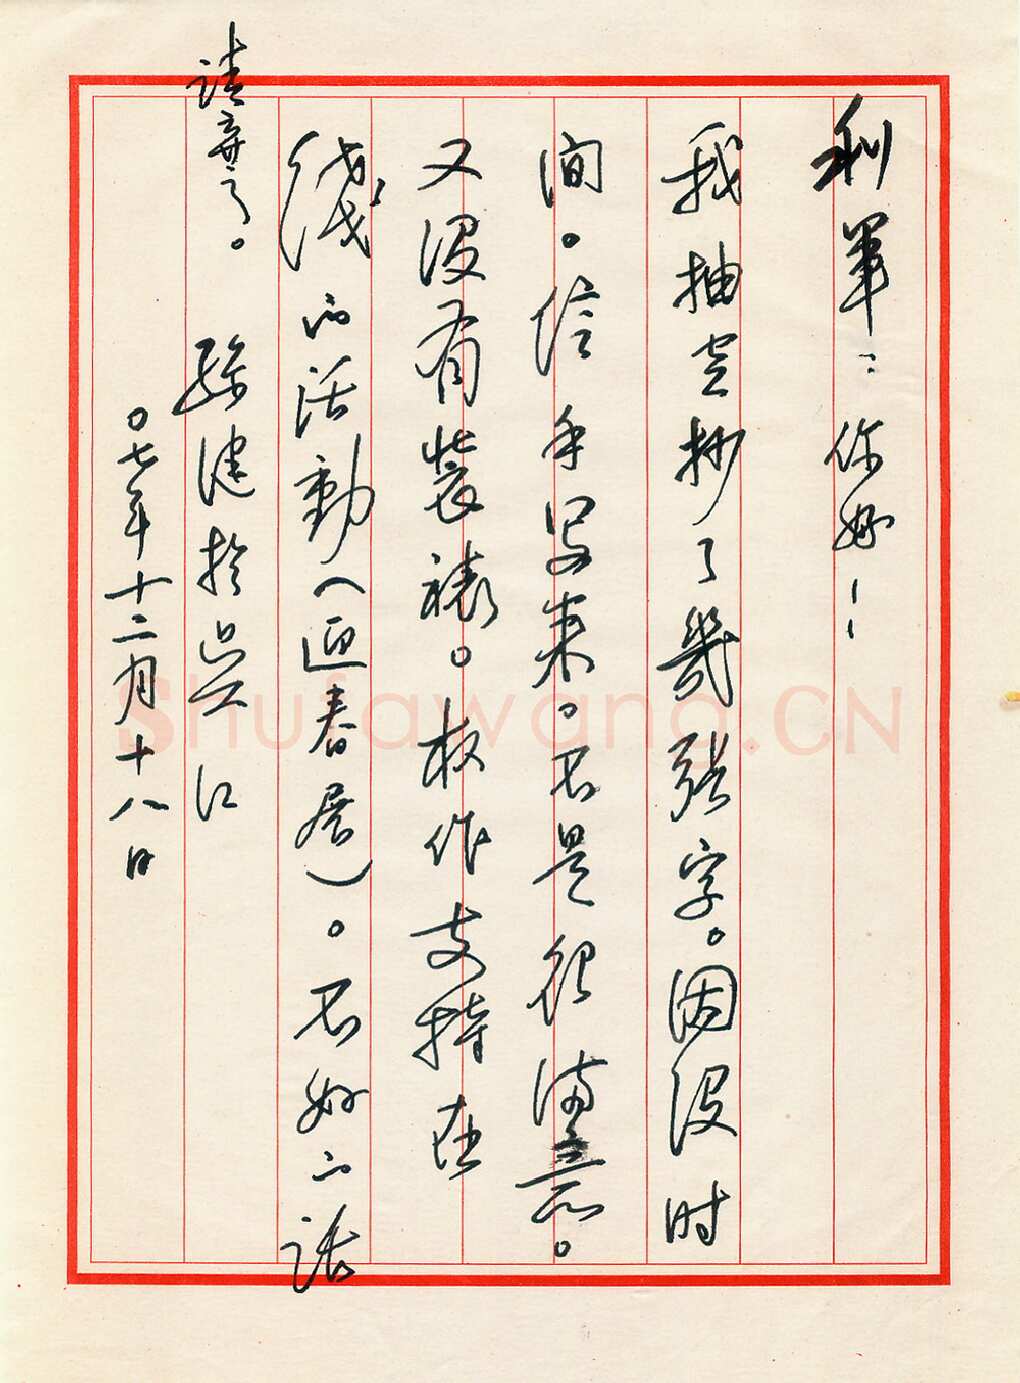 利軍：你好！
我抽空抄了幾张字。因没时
间。信手写来。不是很满意。
又没有装裱。权作支持在
线的活動（迎春展）。不好的话
请弃之。 健於吴江
〇七年十二月十八日
Shufawang.CN